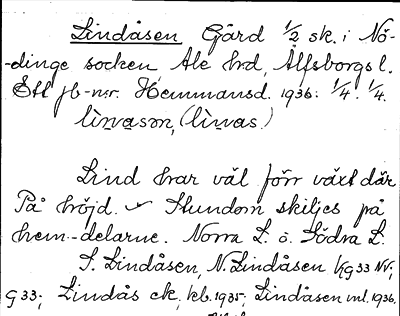 Lindåsen Gård 1/2 sk. i Nö-
-dinge socken Ale hrd, Älfsborgs l.
Ett jb-nr. Hemmansd. 1936: 1/4. 1/4.
lìnason, (lìnas.)
Lind har väl förr växt där
På höjd. Stundom skiljes på
hem-delarne. Norra L. o. Södra L.
S. Lindåsen, N. Lindåsen t/g 33 NV;
G 33; Lindås ek, kb. 1935; Lindåsen ml. 1936.